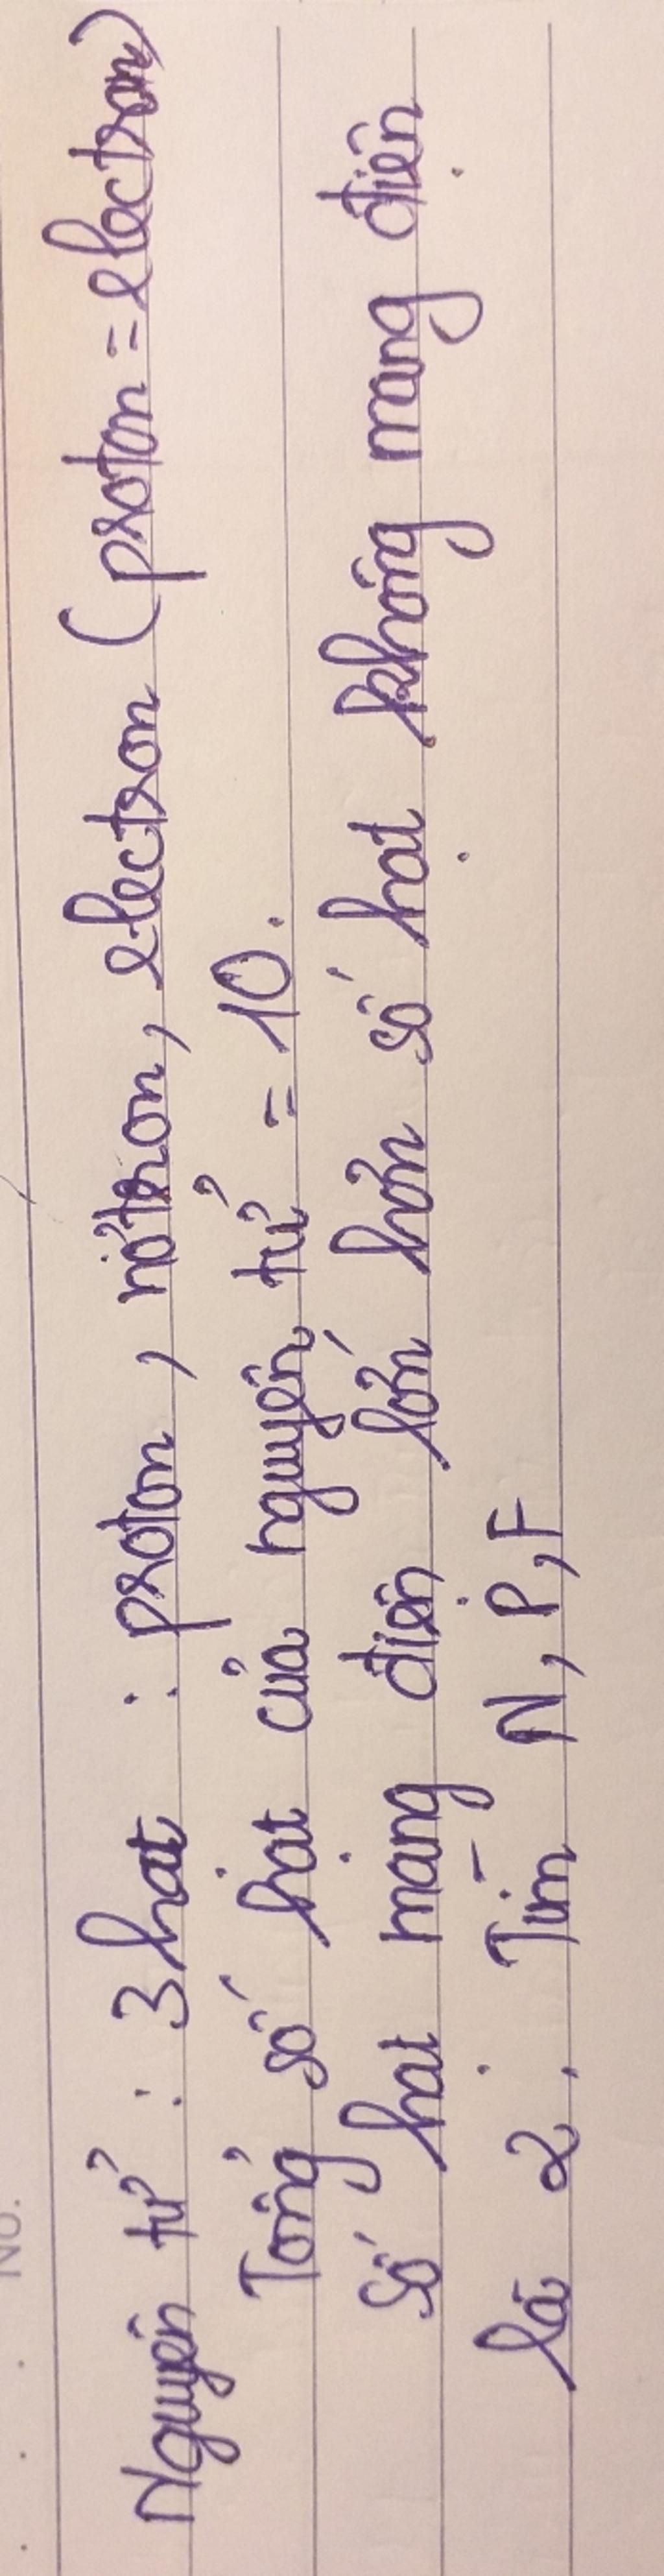 NO.
Nguyên tử : 3 hạt : proton, nơtron, electron (proton = electron)
Tổng số hạt của nguyên tử = 10.
Số hạt mang điện lớn hơn số hạt không mang điện
là 2. Tìm N, P, F